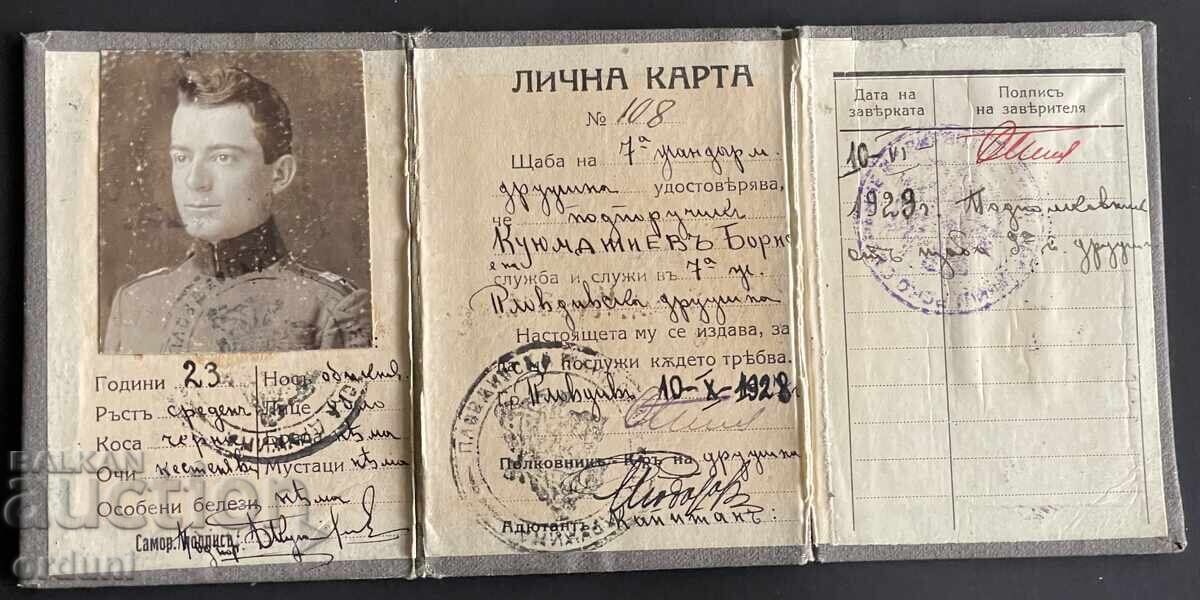 Години 23. Носъ обикнов.
Ръстъ среденъ Лице голо
Коса черни Брада нѣма
Очи кестеняви Мустаци нѣма
Особени белези нѣма
Самор. подписъ:
ЛИЧНА КАРТА
№ 108
Щаба на 7ª жандарм.
дружина удостовѣрява,
че подпоручикъ
Куюмджиевъ Борис
е на
служба и служи въ 7ª ж.
Пловдивска дружина
Настоящета му се издава, за
да му послужи кѫдето трѣбва.
гр. Пловдивъ 10-X-1928 г.
Полковникъ К-ръ на дружина
Адютантъ: Капитанъ:
Дата на завѣрката
Подписъ на завѣрителя
10-VI
1929 г. Подполковникъ
отъ дружина
BALKAN
auction
orduni